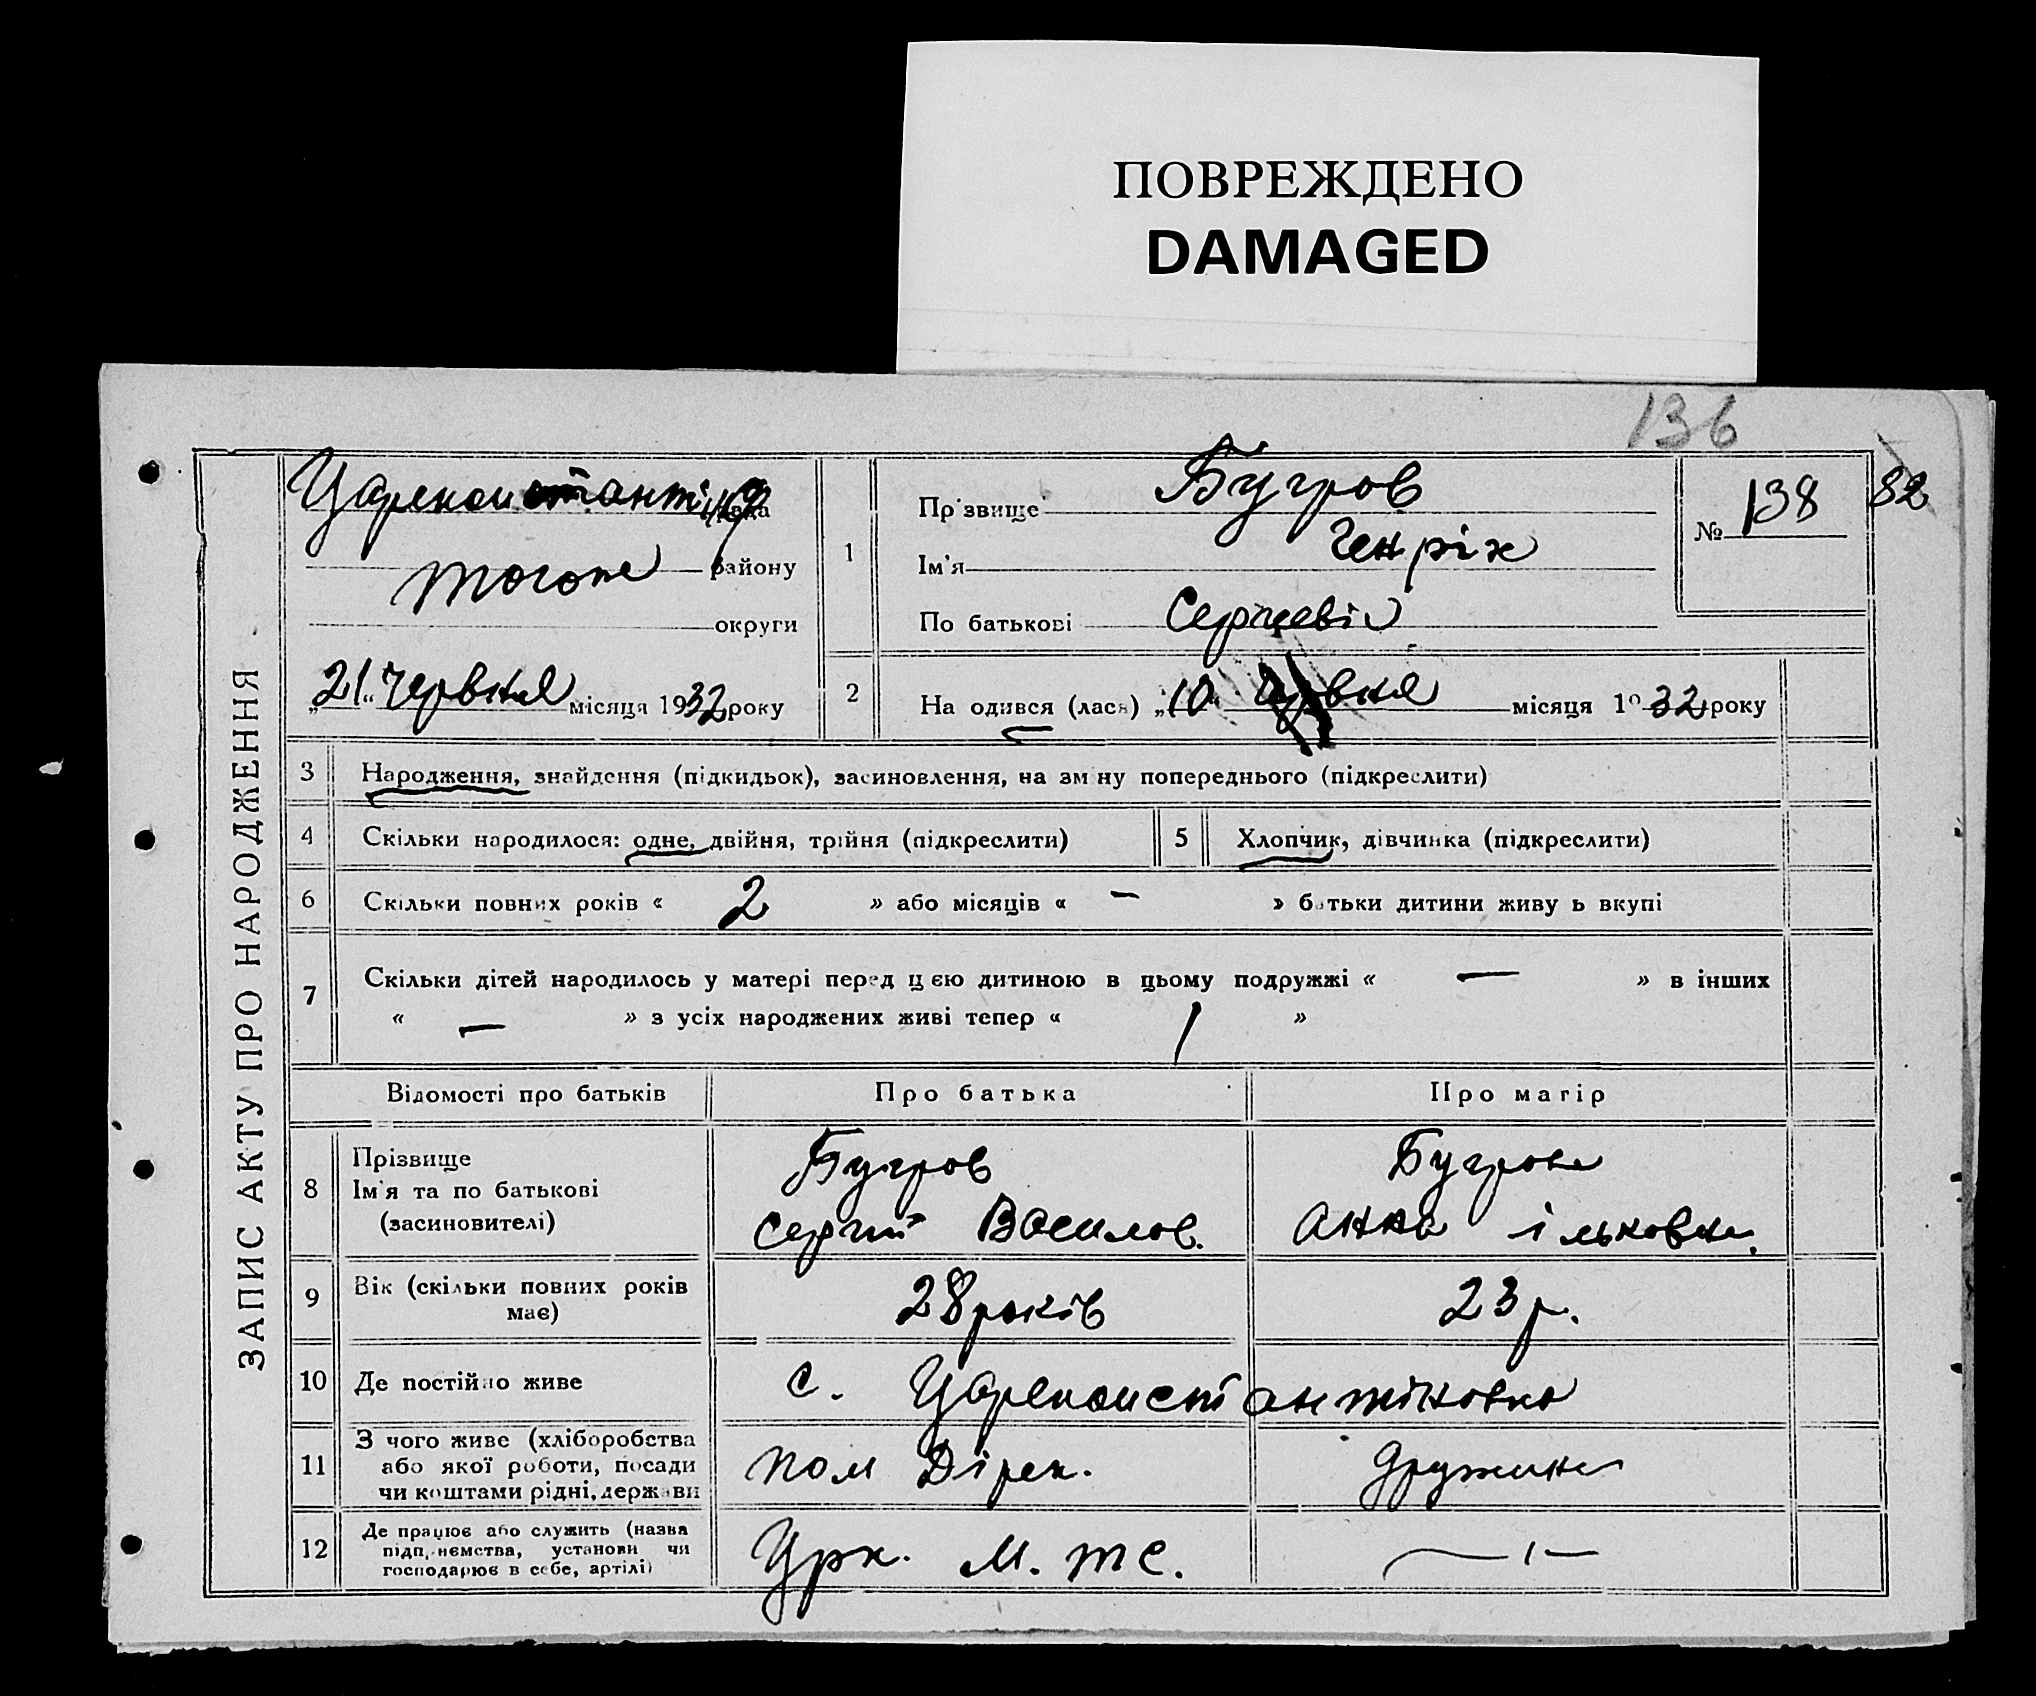 ПОВРЕЖДЕНО
DAMAGED
136
82
ЗАПИС АКТУ ПРО НАРОДЖЕННЯ
рада
району
округи
„21“ червня місяця 1932 року
1
Прізвище Бугров
Ім'я Генріх
По батькові Сергієвіч
№ 138
2
На одився (лася) „10“ червня місяця 1932 року
3 Народження, знайдення (підкидьок), засиновлення, на зміну попереднього (підкреслити)
4 Скільки народилося: одне, двійня, трійня (підкреслити) 5 Хлопчик, дівчинка (підкреслити)
6 Скільки повних років « 2 » або місяців « — » батьки дитини живу ь вкупі
7 Скільки дітей народилось у матері перед цією дитиною в цьому подружжі « — » в інших
« — » з усіх народжених живі тепер « / »
Відомості про батьків Про батька Про матір
8 Прізвище
Ім'я та по батькові
(засиновителі)
Бугров
Сергій Василов.
Бугрова
Анна Ільковна.
9 Вік (скільки повних років
має)
28 років
23 р.
10 Де постійно живе с. Цареконстантіновка
11 З чого живе (хліборобства
або якої роботи, посади
чи коштами рідні, держави
пом Дірек.
дружина
12 Де працює або служить (назва
підприємства, установи чи
господарює в себе, артілі)
Црк. М.Т.С.
—